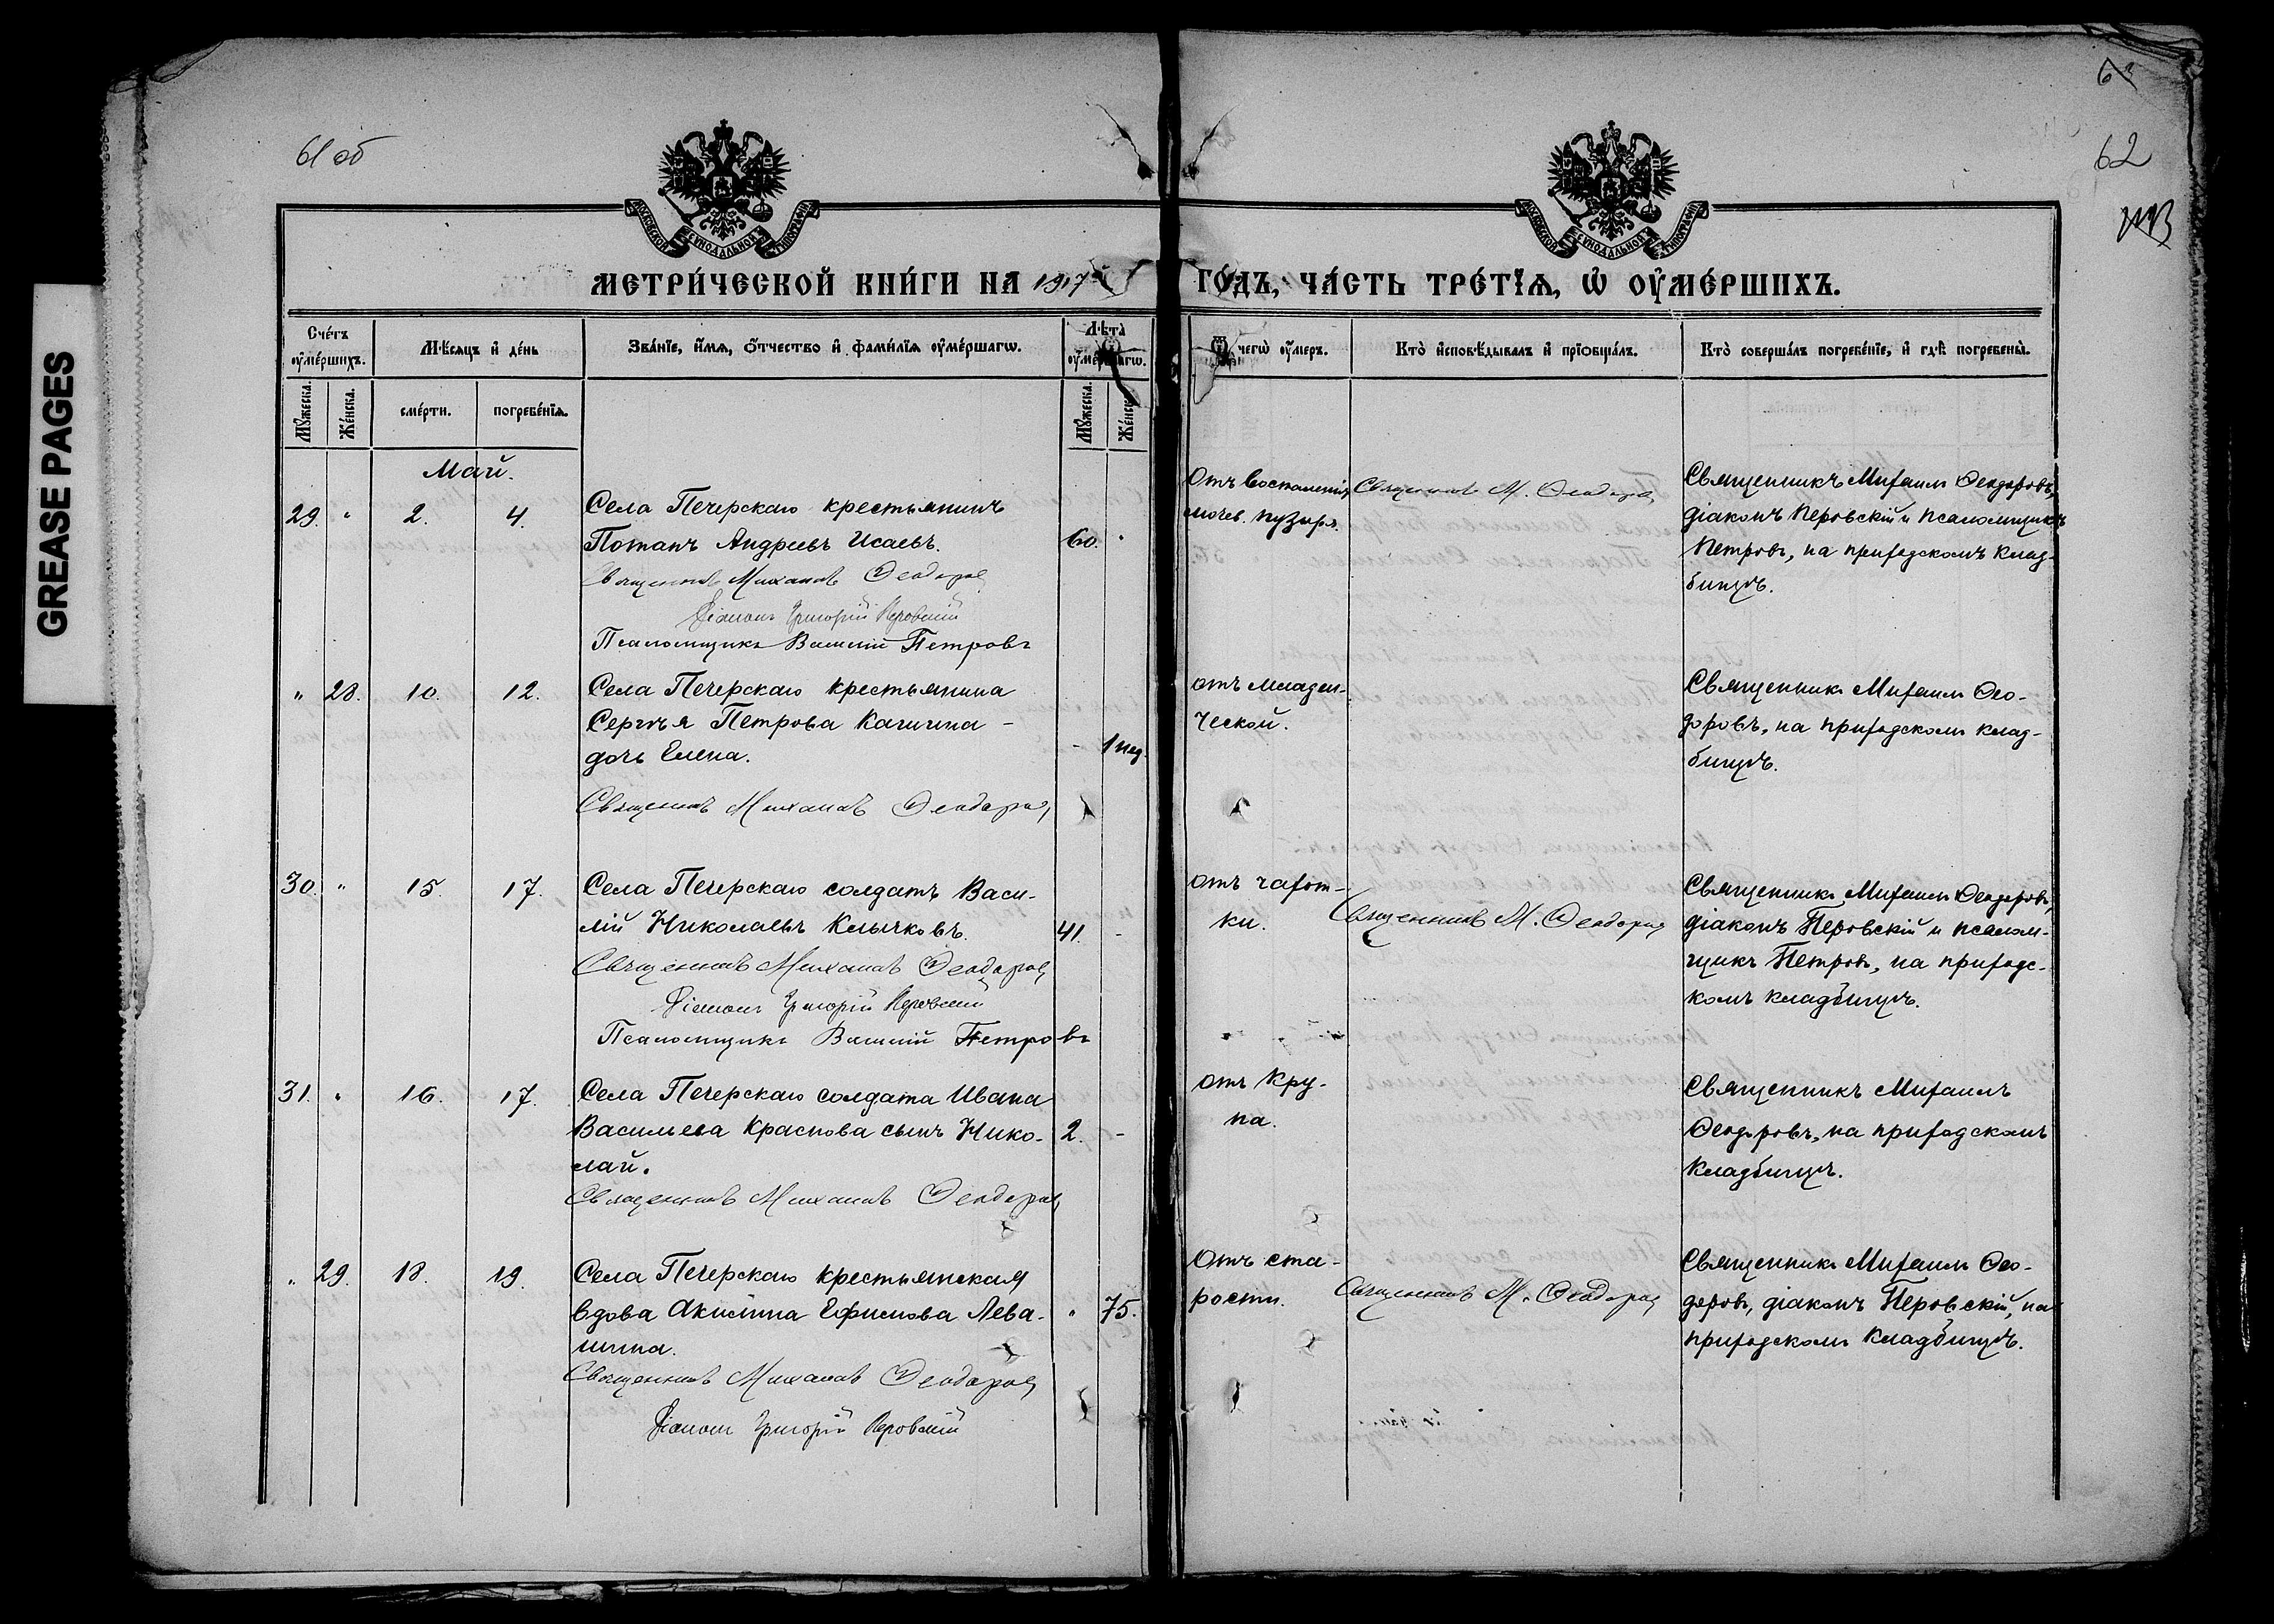 GREASE PAGES
61 об
63
62
МОСКОВСКОЙ СѴНОДАЛЬНОЙ ТИПОГРАФІИ
МОСКОВСКОЙ СѴНОДАЛЬНОЙ ТИПОГРАФІИ
МЕТРИ́ЧЕСКОЙ КНИ́ГИ НА 1917й ГО́ДЪ, ЧА́СТЬ ТРЕ́ТЇѦ, Ѡ҆ ОУ҆МЕ́РШИХЪ.
Сче́тъ
оу҆ме́ршихъ.
Мѣ́сяцъ и҆ де́нь
Зва́нїе, и҆́мѧ, о҆́тчество и҆ фами́лїѧ оу҆ме́ршагѡ.
Лѣ́та
оу҆ме́ршагѡ.
Ѿ чегѡ̀ оу҆́меръ.
Кто̀ и҆сповѣ́дывалъ и҆ прїѻбща́лъ.
Кто̀ соверша́лъ погребе́нїе, и҆ гдѣ̀ погребены̀.
Мꙋ́жеска.
Же́нска.
сме́рти.
погребе́нїѧ.
Мꙋ́жеска.
Же́нска.
Май.
29. " 2. 4.
Села Печерскаго крестьянинъ
Потапъ Андреевъ Исаевъ.
60. "
Священникъ Михаилъ Ѳеодоровъ
Діаконъ Григорій Перовскій
Псаломщикъ Василій Петровъ
Отъ воспаленія
мочев. пузыря.
Священникъ М. Ѳеодоровъ
Священникъ Михаилъ Ѳеодоровъ,
діаконъ Перовскій и псаломщикъ
Петровъ, на приходскомъ клад-
бищѣ.
" 28. 10. 12.
Села Печерскаго крестьянина
Сергѣя Петрова Качигина -
дочь Елена.
- 1 нед.
Священникъ Михаилъ Ѳеодоровъ
отъ младен-
ческой.
Священникъ Михаилъ Ѳео-
доровъ, на приходскомъ клад-
бищѣ.
30. " 15. 17.
Села Печерскаго солдатъ Васи-
лій Николаевъ Клычковъ.
41. -
Священникъ Михаилъ Ѳеодоровъ
Діаконъ Григорій Перовскій
Псаломщикъ Василій Петровъ
отъ чахот-
ки.
Священникъ М. Ѳеодоровъ
Священникъ Михаилъ Ѳеодоровъ,
діаконъ Перовскій и псалом-
щикъ Петровъ, на приходс-
комъ кладбищѣ.
31. " 16. 17.
Села Печерскаго солдата Ивана
Васильева Краснова сынъ Нико-
лай.
2. -
Священникъ Михаилъ Ѳеодоровъ
отъ кру-
па.
Священникъ Михаилъ
Ѳеодоровъ, на приходскомъ
кладбищѣ.
" 29. 18. 19.
Села Печерскаго крестьянская
вдова Акилина Ефимова Лева-
шина.
" 75.
Священникъ Михаилъ Ѳеодоровъ
Діаконъ Григорій Перовскій
Отъ ста-
рости.
Священникъ М. Ѳеодоровъ
Священникъ Михаилъ Ѳео-
доровъ, діаконъ Перовскій, на
приходскомъ кладбищѣ.